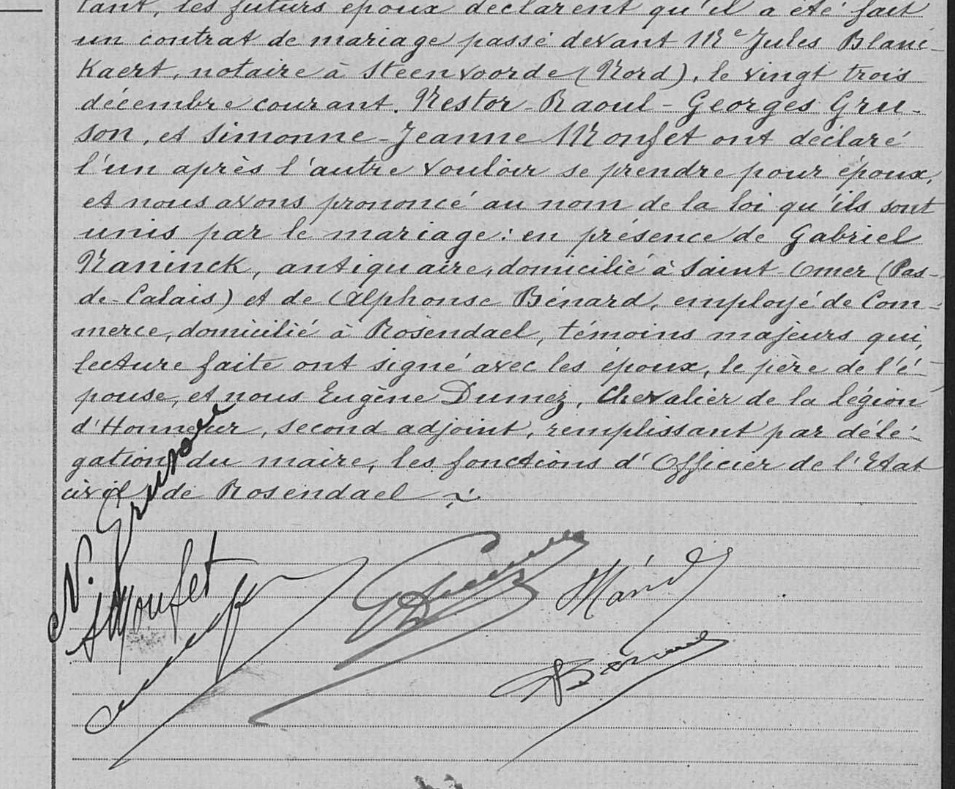 tant, les futurs époux déclarent qu'il a été fait
un contrat de mariage passé devant Me Jules Blanc-
Kaert, notaire à Steenvoorde (Nord), le vingt trois
décembre courant. Nestor-Raoul-Georges Gru-
son, et Simonne-Jeanne Monfet ont déclaré
l'un après l'autre vouloir se prendre pour époux,
et nous avons prononcé au nom de la loi qu'ils sont
unis par le mariage: en présence de Gabriel
Naninck, antiquaire, domicilié à Saint-Omer (Pas-
de-Calais) et de Alphonse Bénard, employé de Com-
merce, domicilié à Rosendael, témoins majeurs qui,
lecture faite ont signé avec les époux, le père de l'é-
pouse, et nous Eugène Dumez, Chevalier de la légion
d'Honneur, second adjoint, remplissant par délé-
gation du maire, les fonctions d'Officier de l'Etat
civil de Rosendael
N. Gruson
S Monfet